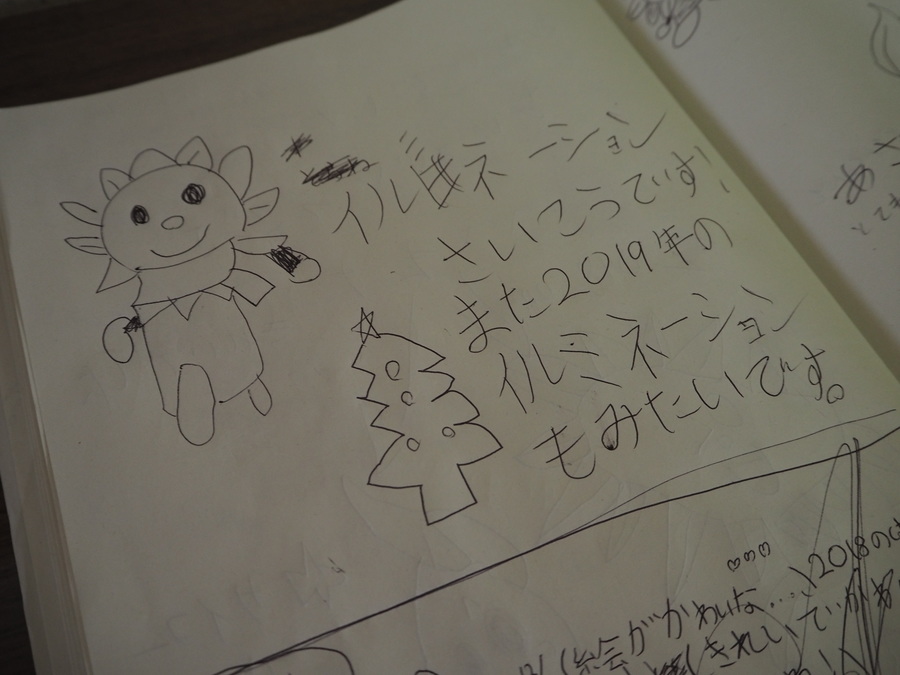 イルミネーション
さいこうです!
また2019年の
イルミネーション
もみたいです。
(絵がかわいいな...)2018の
きれいで